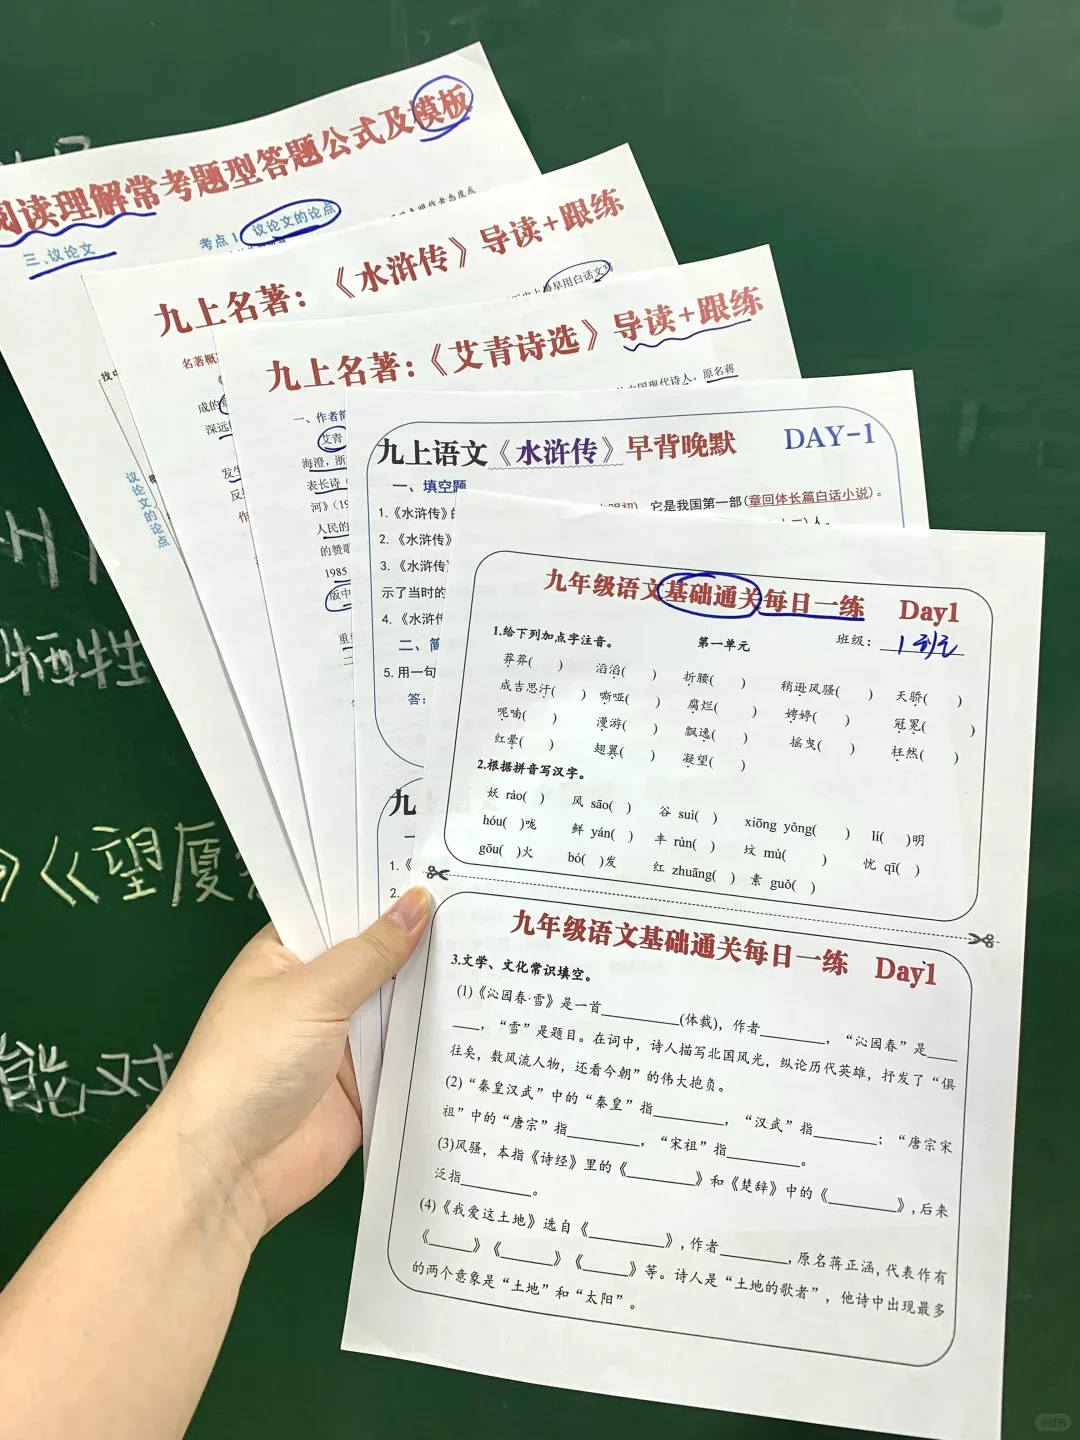 阅读理解常考题型答题公式及模板
三、议论文
考点1 议论文的论点
议论文的论点
九上名著：《水浒传》导读+跟练
早用白话文写
名著概
成的
深远
发生
反
九上名著：《艾青诗选》导读+跟练
原名蒋
一、作者简
艾青
海澄，浙
表长诗
河》(19
人民的
的赞歌
1985
版中
九上语文《水浒传》早背晚默 DAY-1
一、填空题
1.《水浒传》的 它是我国第一部(章回体长篇白话小说)。
2.《水浒传》 人。
3.《水浒传》
示了当时的
4.《水浒传
二、简
5.用一句
答：
九
一
1.《
2.
九年级语文基础通关每日一练 Day1
1.给下列加点字注音。 第一单元 班级：
莽莽( ) 滔滔( ) 折腰( ) 稍逊风骚( ) 天骄( )
成吉思汗( ) 嘶哑( ) 腐烂( ) 娉婷( ) 冠冕( )
呢喃( ) 漫游( ) 飘逸( ) 摇曳( ) 枉然( )
红晕( ) 翅翼( ) 凝望( )
2.根据拼音写汉字。
妖 ráo( ) 风 sāo( ) 谷 suì( ) xiōng yǒng( ) lí( )明
hóu( )咙 鲜 yán( ) 丰 rùn( ) 坟 mù( ) 忧 qī( )
gōu( )火 bó( )发 红 zhuāng( ) 素 guǒ( )
九年级语文基础通关每日一练 Day1
3.文学、文化常识填空。
(1)《沁园春·雪》是一首________(体裁)，作者________，“沁园春”是____
____，“雪”是题目。在词中，诗人描写北国风光，纵论历代英雄，抒发了“俱
往矣，数风流人物，还看今朝”的伟大抱负。
(2)“秦皇汉武”中的“秦皇”指________，“汉武”指________；“唐宗宋
祖”中的“唐宗”指________，“宋祖”指________。
(3)风骚，本指《诗经》里的《________》和《楚辞》中的《________》,后来
泛指________。
(4)《我爱这土地》选自《________》,作者________,原名蒋正涵,代表作有
《_____》《______》《_____》等。诗人是“土地的歌者”，他诗中出现最多
的两个意象是“土地”和“太阳”。
牺牲
《望厦
能 对
小红书